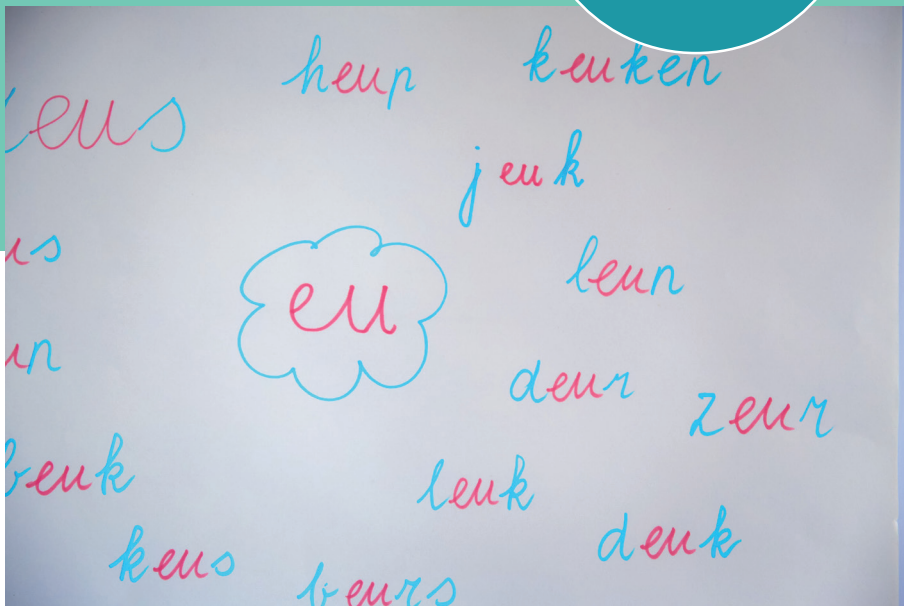 heup
keuken
eus
jeuk
leun
eu
deur
zeur
beuk
leuk
deuk
keus
beurs